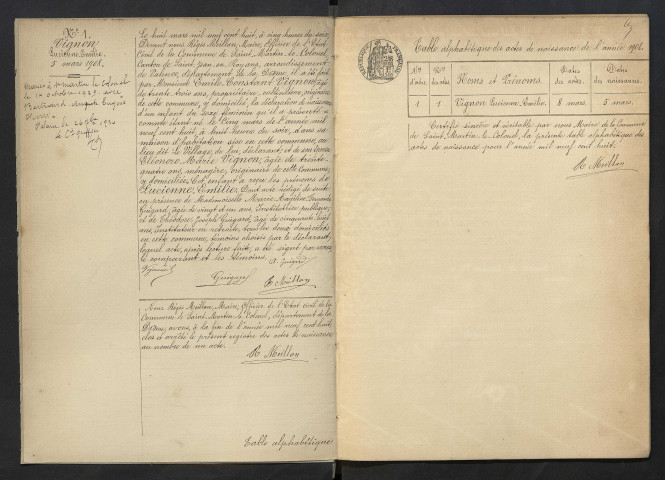 N° 1.
Vignon
Lucienne Emilie.
5 mars 1908.
Mariée à St Martin le Colonel
le octobre 1929 avec
Pierre
Le huit mars mil neuf cent huit, à cinq heures du soir,
Devant nous Régis Mullon, Maire, Officier de l'Etat
Civil de la Commune de Saint-Martin-le-Colonel,
Canton de Saint-Jean-en-Royans, arrondissement
de Valence, département de la Drôme, il a été fait
par Monsieur Emile Constant Vignon, âgé
de trente trois ans, propriétaire, cultivateur, originaire
de cette commune, y domicilié, la déclaration de naissance
d'un enfant du sexe féminin qu'il a présenté, a
comme étant né le Cinq mars de l'année mil
neuf cent huit, à huit heures du soir, dans sa
maison d'habitation sise en cette commune, au
lieu dit le Village, de lui, déclarant, et de son épouse
Eléonore Marie Vignon, âgée de trente
quatre ans, ménagère, originaire de cette commune,
y domiciliée. Cet enfant a reçu les prénoms de
Lucienne, Emilie. Dont acte rédigé de suite
en présence de Mademoiselle Marie
Guigard, âgée de vingt d'un ans, Institutrice publique,
et de Théodore Joseph Guigard, âgé de cinquante huit
ans, Instituteur en retraite, tous les deux domiciliés
en cette commune, témoins choisis par le déclarant,
lequel acte, après lecture faite, a été signé par nous,
le comparant et les témoins.
Vignon E. Guigard
Guigard R Mullon
Nous Régis Mullon, Maire, Officier de l'Etat civil de la
Commune de Saint-Martin-le-Colonel, département de la
Drôme, avons, à la fin de l'année mil neuf cent huit,
clos et arrêté le présent registre des actes de naissance
au nombre de un acte.
R Mullon
Table alphabétique
Table alphabétique des actes de naissance de l'année 1908.
Nos d'ordre Nos des actes Noms et Prénoms. Dates des actes. Dates des naissances.
1 1 Vignon Lucienne Emilie. 8 mars. 5 mars.
Certifié sincère et véritable par nous Maire de la Commune
de Saint-Martin-le-Colonel, la présente table alphabétique des
actes de naissance pour l'année mil neuf cent huit.
R Mullon